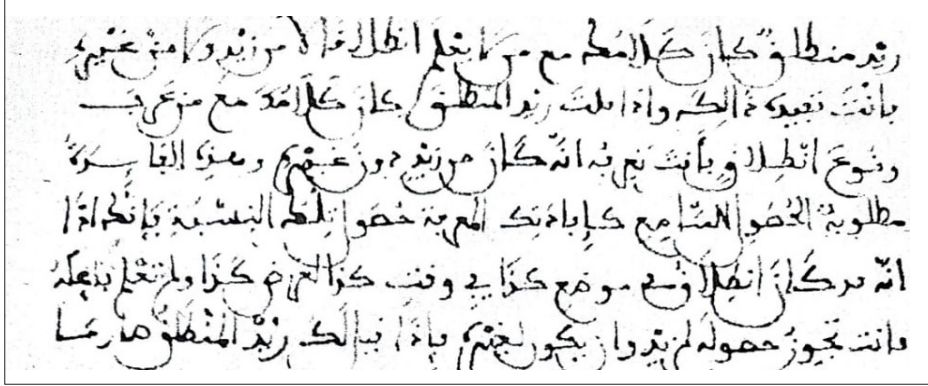 زيد منطلق كان كلامك مع من لم يعلم انطلاقا لا من زيد ولا من غيره
فانت تفيده ذالك واذا قلت زيد المنطلق كان كلامك مع من عرف
وقوع انطلاق فانت تعرفه انه كان من زيد دون غيره وهذه الفاسدة
مطلوبة الحصول للسامع كإفادتك المعرفة حصول تلك النسبة فإنك اذا
انه قد كان انطلاق في موضع كذا في وقت كذا لغرض كذا ولم تعلم فاعله
فانت تجوز حصوله لزيد وان يكون لغيره فإذا قيل لك زيد المنطلق صار